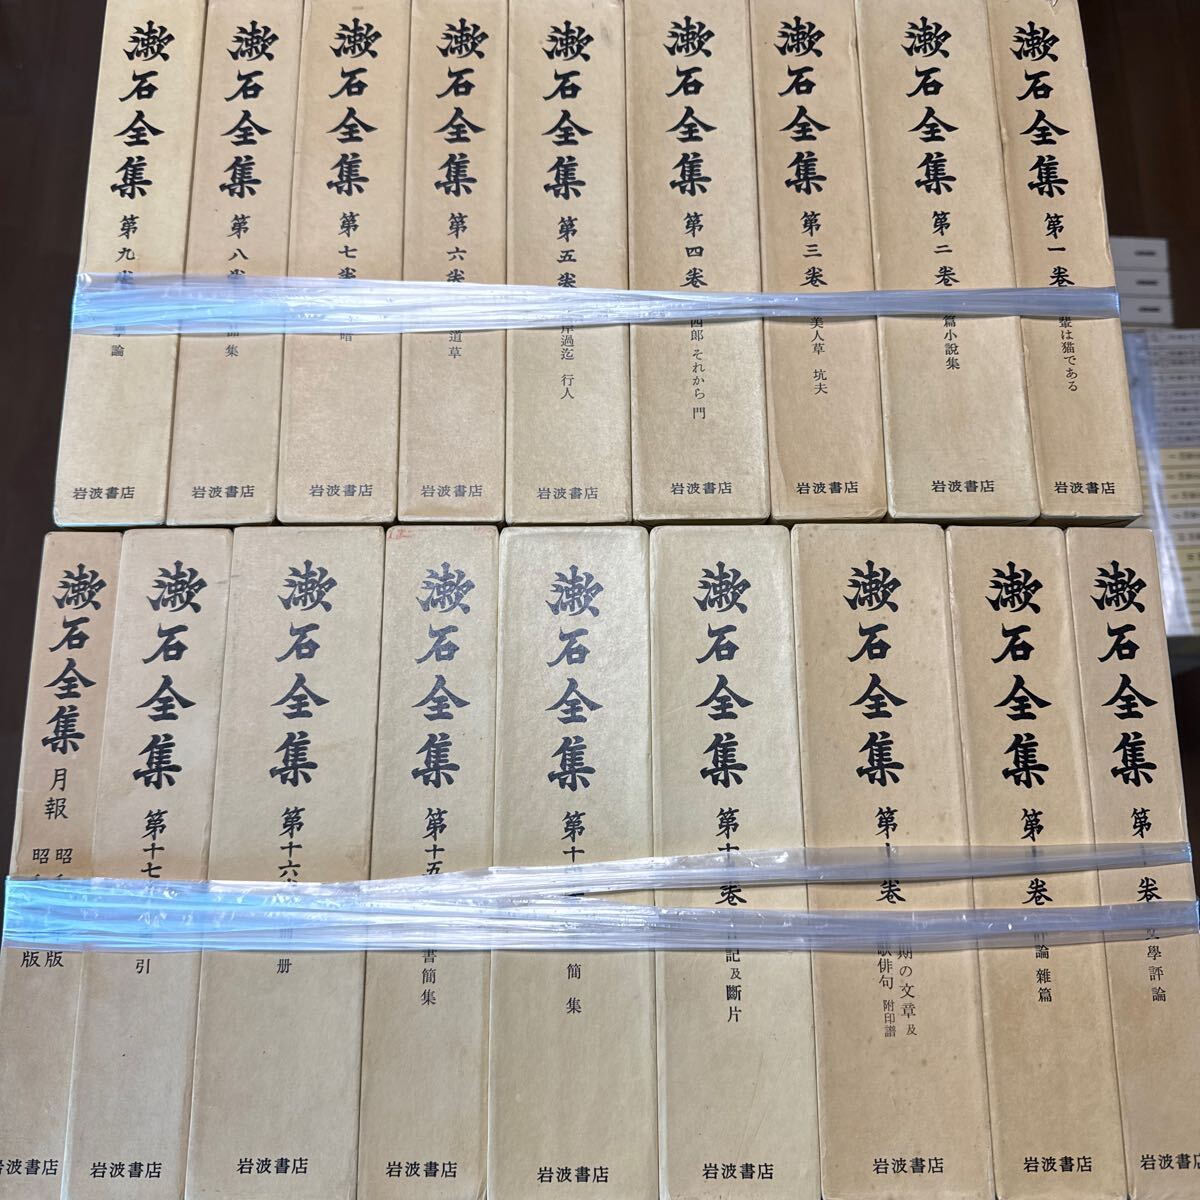 漱石全集 第一卷
輩は猫である
岩波書店
漱石全集 第二卷
篇小說集
岩波書店
漱石全集 第三卷
美人草 坑夫
岩波書店
漱石全集 第四卷
四郎 それから 門
岩波書店
漱石全集 第五卷
岸過迄 行人
岩波書店
漱石全集 第六卷
道草
岩波書店
漱石全集 第七卷
暗
岩波書店
漱石全集 第八卷
品集
岩波書店
漱石全集 第九卷
學論
岩波書店
漱石全集 第十卷
文學評論
岩波書店
漱石全集 第十 卷
評論 雜篇
岩波書店
漱石全集 第十 卷
期の文章 及
歌俳句 附印譜
岩波書店
漱石全集 第十 卷
日記及斷片
岩波書店
漱石全集 第十
簡集
岩波書店
漱石全集 第十五
書簡集
岩波書店
漱石全集 第十六卷
冊
岩波書店
漱石全集 第十七
引
岩波書店
漱石全集 月報
昭 版
昭 版
岩波書店